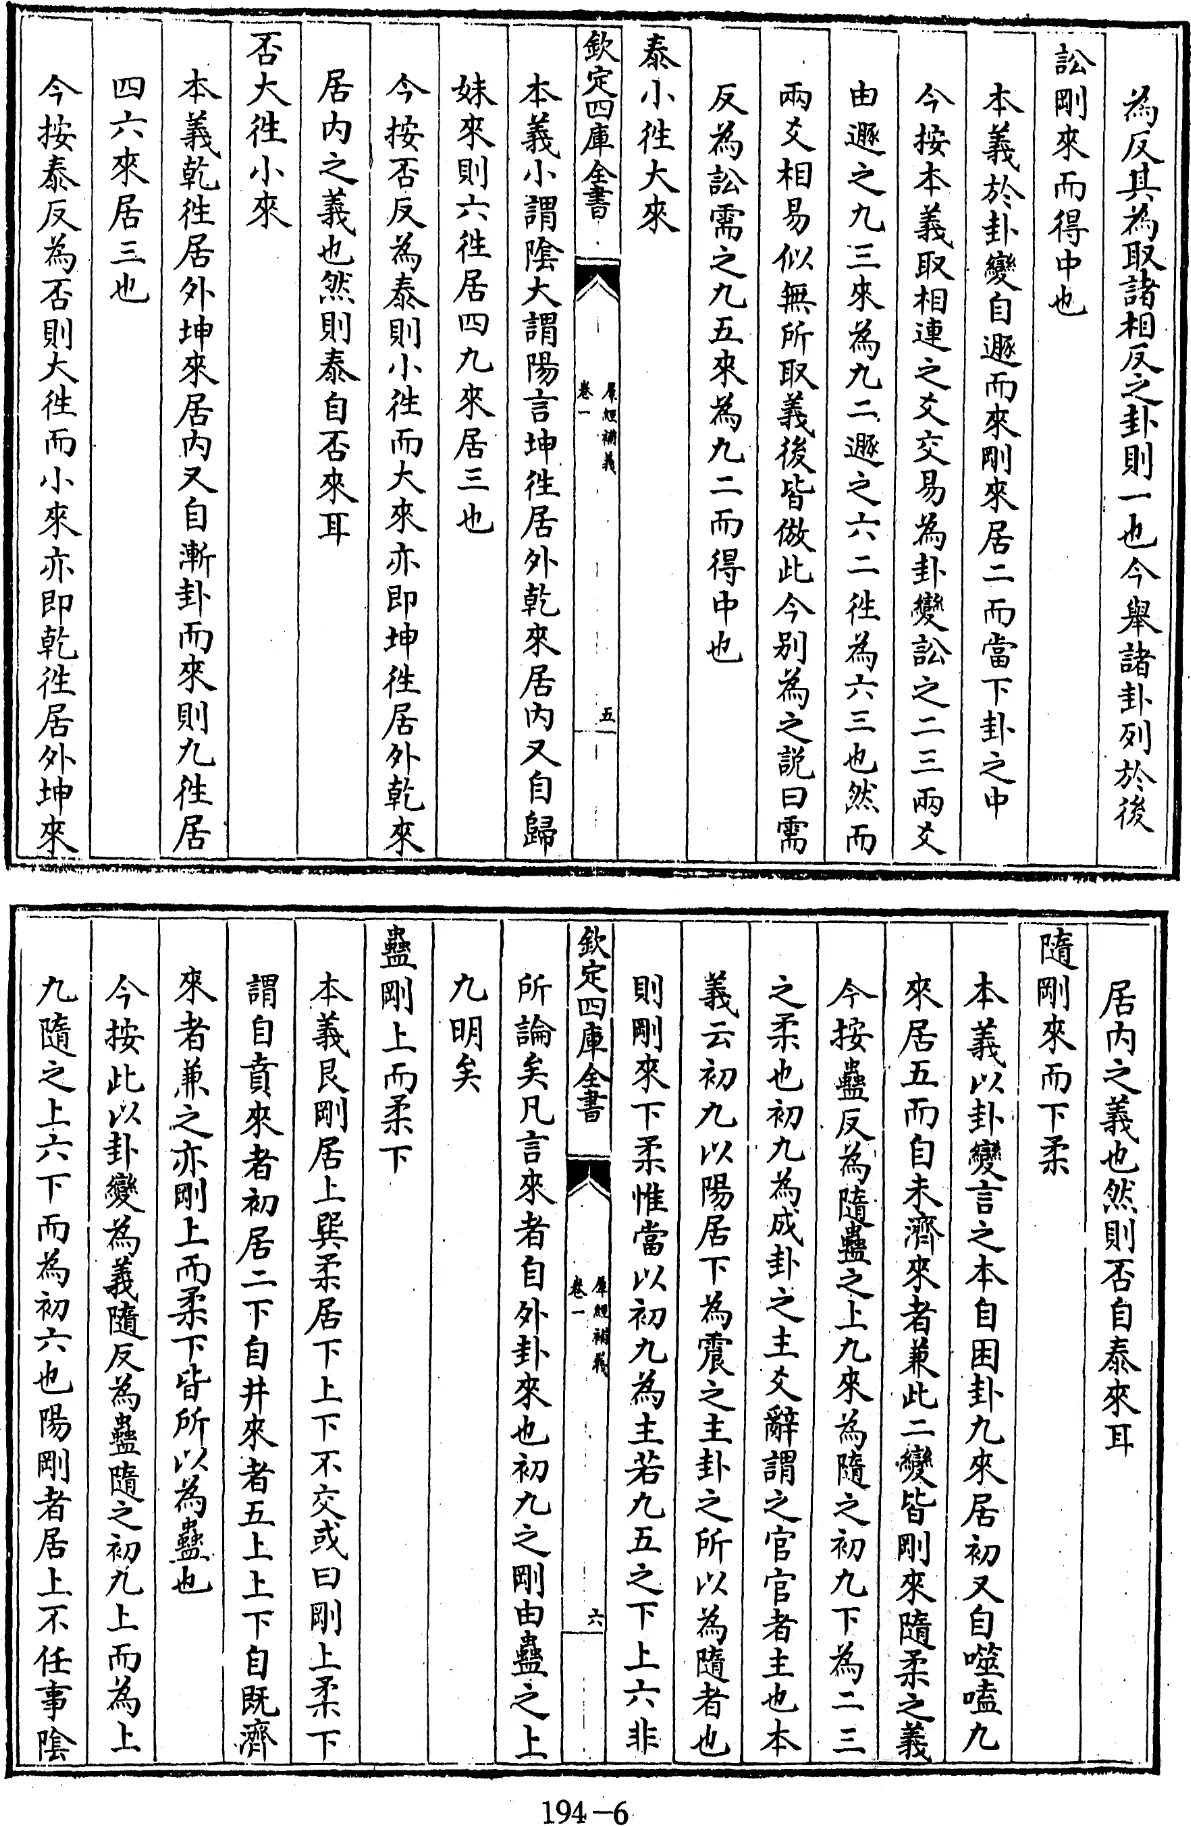 為反其為取諸相反之卦則一也今舉諸卦列於後
訟剛來而得中也
本義於卦變自遯而來剛來居二而當下卦之中
今按本義取相連之爻交易為卦變訟之二三兩爻
由遯之九三來為九二遯之六二徃為六三也然而
兩爻相易似無所取義後皆倣此今别為之說曰需
反為訟需之九五來為九二而得中也
泰小徃大來
欽定四庫全書
羣經補義
卷一
五
本義小謂陰大謂陽言坤徃居外乾來居内又自歸
妹來則六徃居四九來居三也
今按否反為泰則小徃而大來亦即坤徃居外乾來
居内之義也然則泰自否來耳
否大徃小來
本義乾徃居外坤來居内又自漸卦而來則九徃居
四六來居三也
今按泰反為否則大徃而小來亦即乾徃居外坤來
居内之義也然則否自泰來耳
隨剛來而下柔
本義以卦變言之本自困卦九來居初又自噬嗑九
來居五而自未濟來者兼此二變皆剛來隨柔之義
今按蠱反為隨蠱之上九來為隨之初九下為二三
之柔也初九為成卦之主爻辭謂之官官者主也本
義云初九以陽居下為震之主卦之所以為隨者也
則剛來下柔惟當以初九為主若九五之下上六非
欽定四庫全書
羣經補義
卷一
六
所論矣凡言來者自外卦來也初九之剛由蠱之上
九明矣
蠱剛上而柔下
本義艮剛居上巽柔居下上下不交或曰剛上柔下
謂自賁來者初居二下自井來者五上上下自既濟
來者兼之亦剛上而柔下皆所以為蠱也
今按此以卦變為義隨反為蠱隨之初九上而為上
九隨之上六下而為初六也陽剛者居上不任事陰
194-6